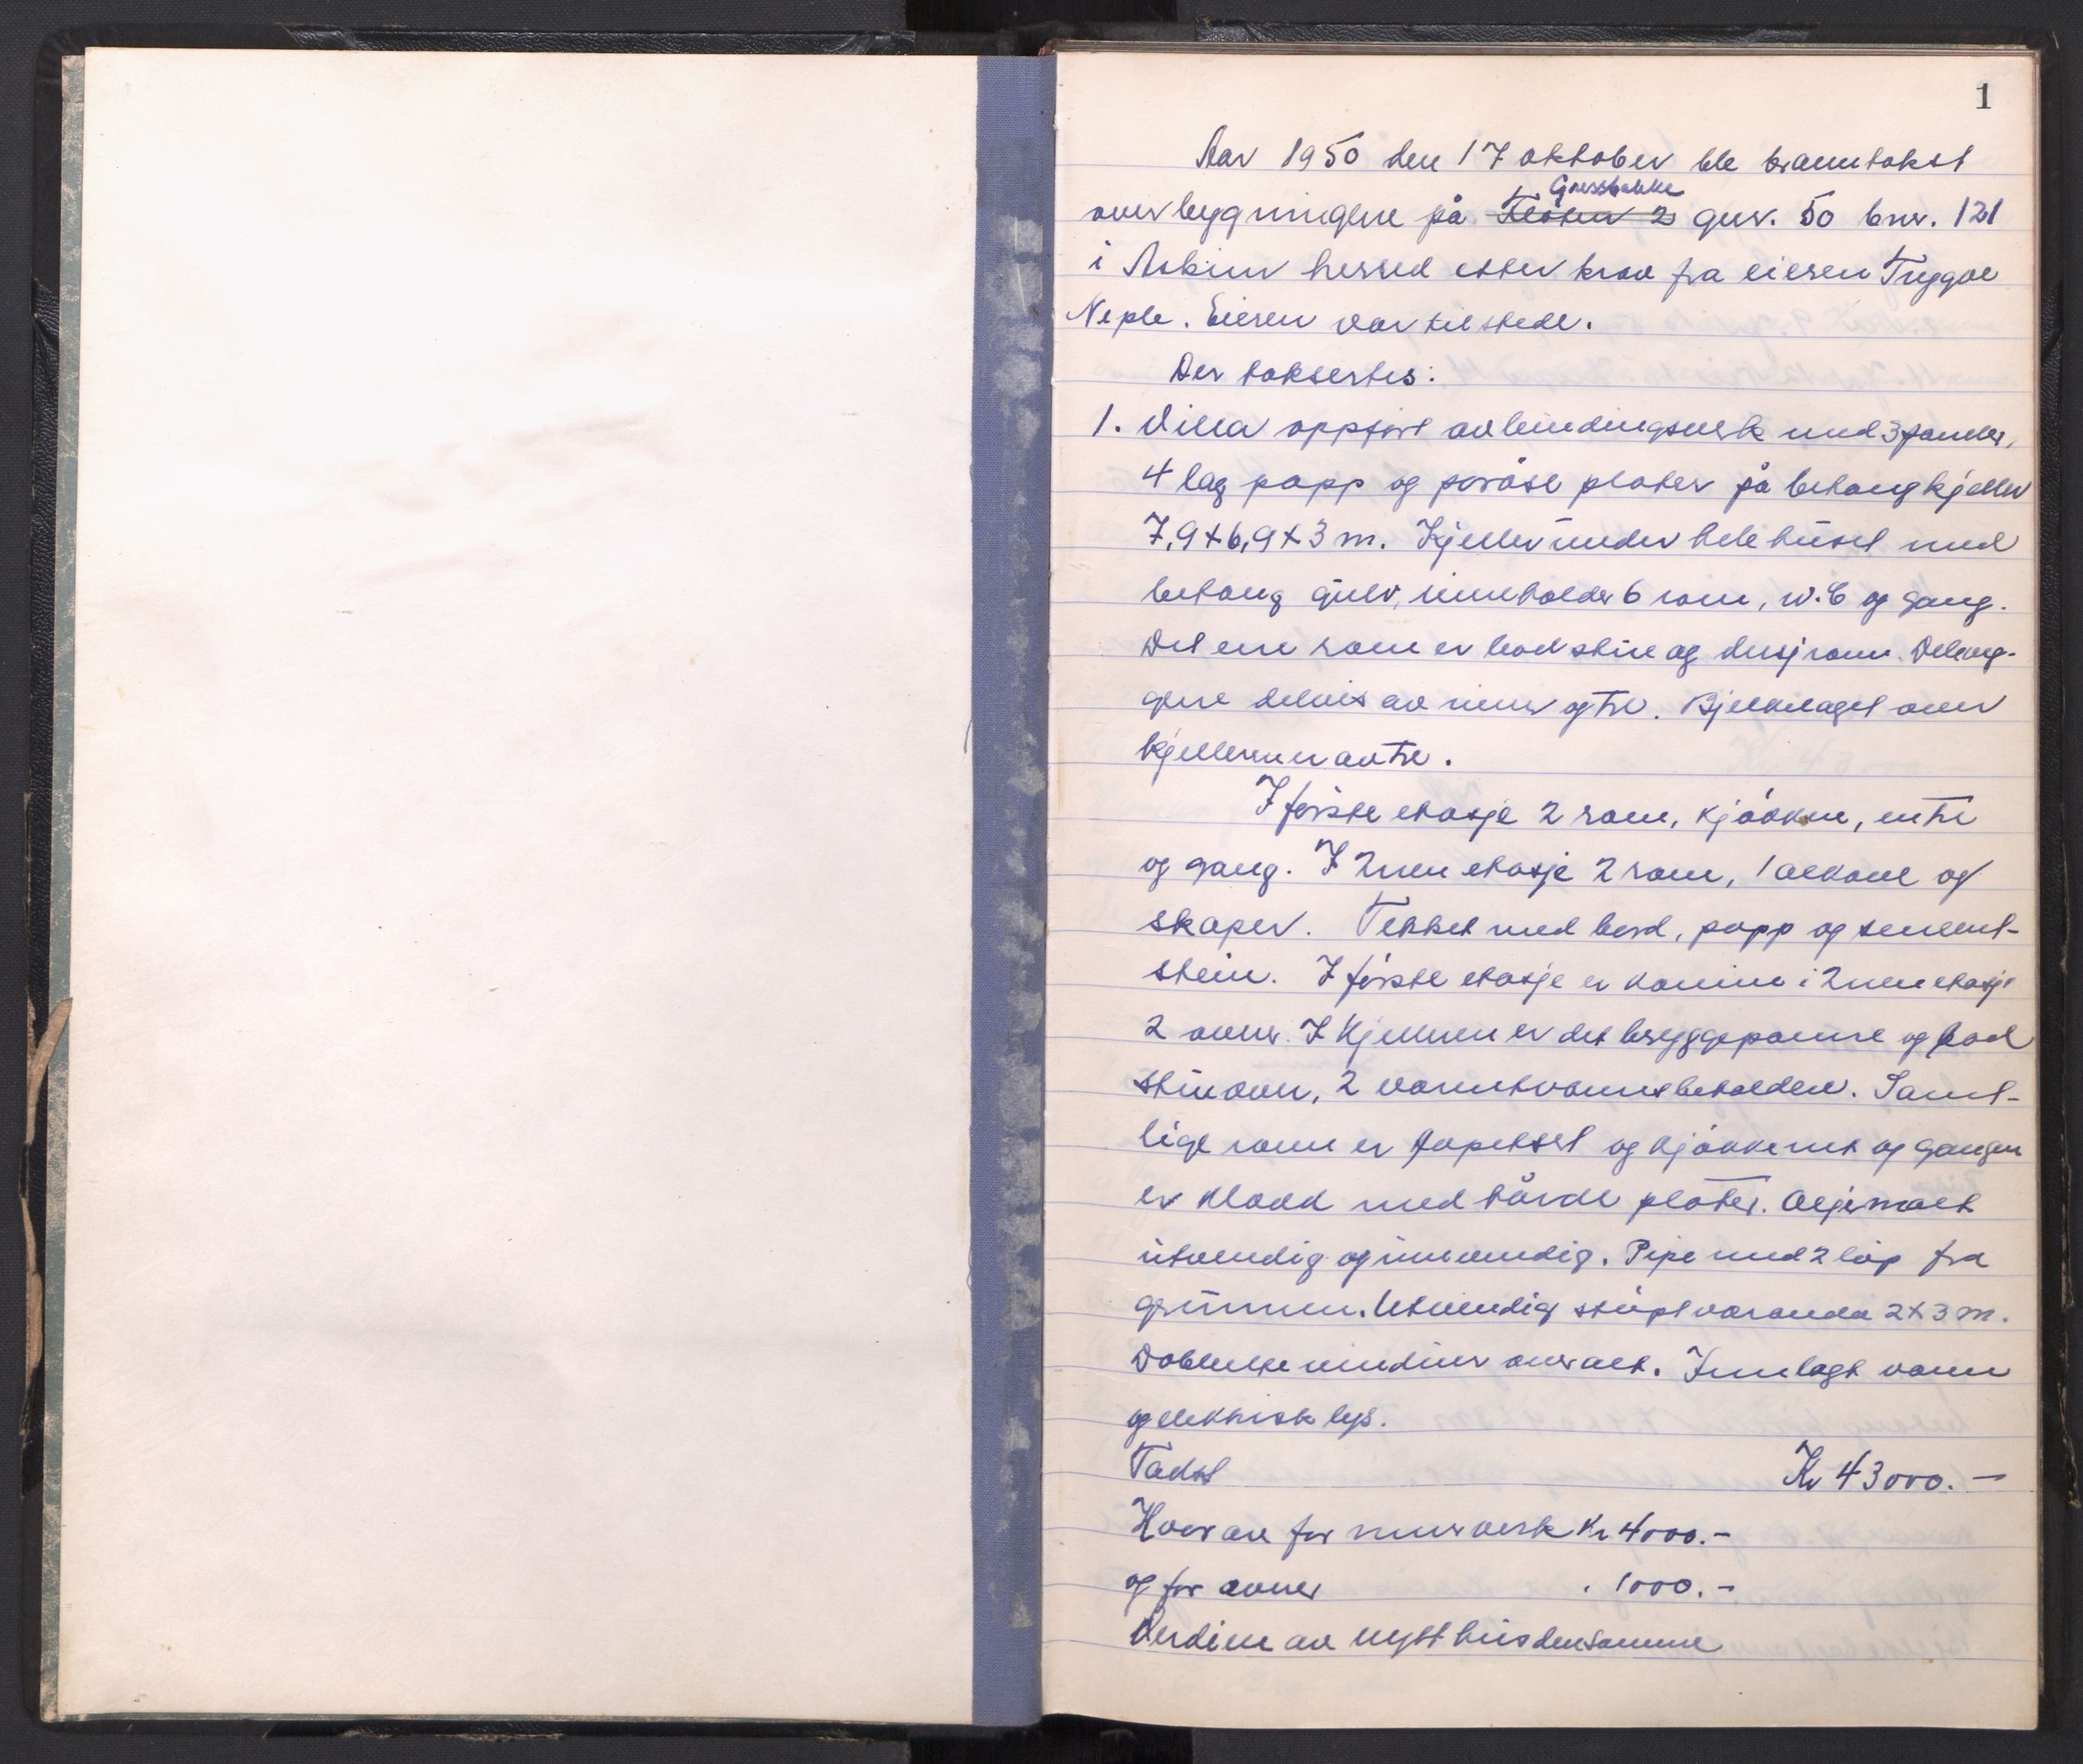 1
Aar 1950 den 17 oktober ble branntakst
Gressbakke
over bygningene på Fløten 2 gnr. 50 bnr. 121
i Askim herred etter krav fra eieren Tryggve
Neple. Eieren var tilstede.
Der taksertes:
1. Villa oppført av bindingsverk med 3 paneler,
4 lag papp og porøse plater på betong kjeller
7,9 x 6,9 x 3 m. Kjeller under hele huset med
betong gulv, inneholder 6 rom, W.C og gang.
Det ene rom er badstue og dusjrom. Deleveg-
gene delvis av mur og tre. Bjelkelaget over
kjelleren er av tre.
I første etasje 2 rom, kjøkken, entre
og gang. I 2nen etasje 2 rom, 1 alkove og
skaper. Tekket med bord, papp og sement-
stein. I første etasje er kamin i 2nen etasje
2 ovner. I kjelleren er det bryggepanne og bad
stueovn, 2 varmtvannsbeholdere. Samt-
lige rom er tapetsert og kjøkkenet og gangen
er kledd med hårde plater. Oljemalt
utvendig og innvendig. Pipe med 2 løp fra
grunnen. Utvendig støpt varanda 2 x 3 m.
Doblelte vinduer overalt. Innlagt vann
og elektrisk lys.
Takst Kr 43000.-
Hvorav for murverk Kr 4000.-
og for ovner " 1000.-
Verdien av nytt hus densamme